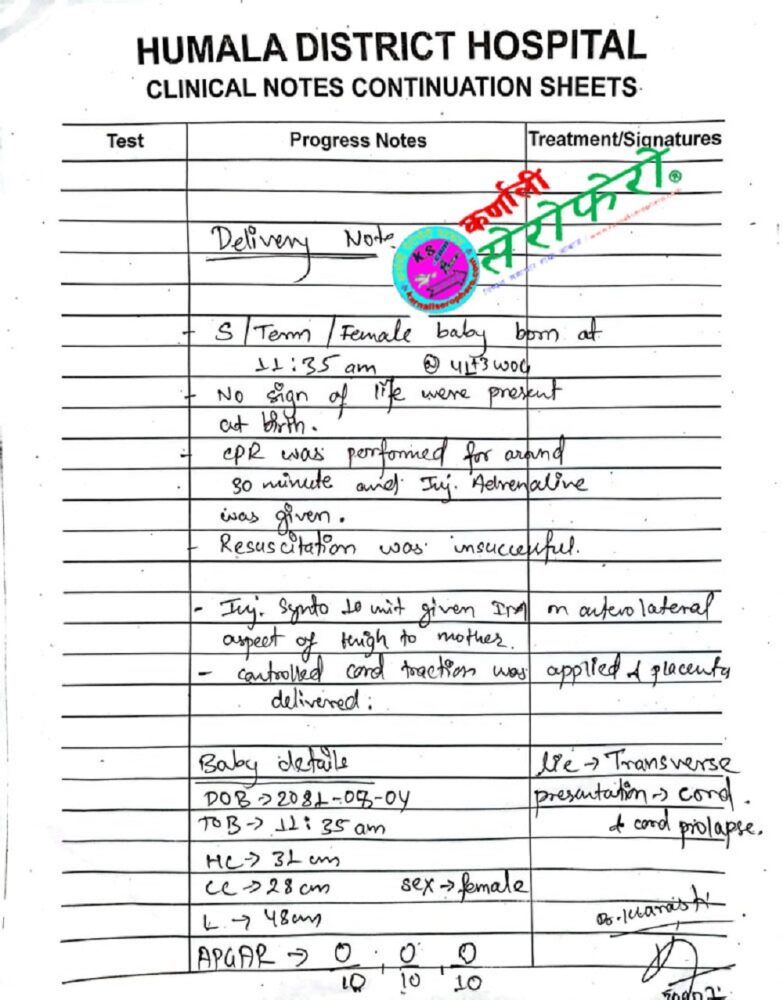 HUMALA DISTRICT HOSPITAL
CLINICAL NOTES CONTINUATION SHEETS
Test Progress Notes Treatment/Signatures
कर्णाली
सेरोफेरो
Delivery Note
- S/Term/Female baby born at
11:35 am @ 41+3 WOG
- No sign of life were present
at birth.
- CPR was performed for around
30 minute and Inj. Adrenaline
was given.
- Resuscitation was unsuccessful.
- Inj. Synto 10 unit given IM on anterolateral
aspect of thigh to mother.
- controlled cord traction was applied & placenta
delivered:
Baby details lie → Transverse
DOB → 2081-08-04 presentation → cord.
TOB → 11:35 am & cord prolapse.
HC → 31 cm
CC → 28 cm sex → female
L → 48 cm
APGAR → 0/10, 0/10, 0/10